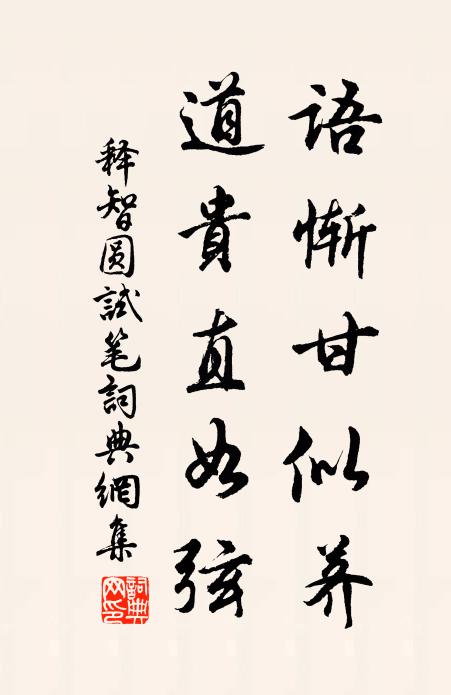 語慚甘似荠
道貴直如弦
释智圆試笔詞典網集
詞典网印